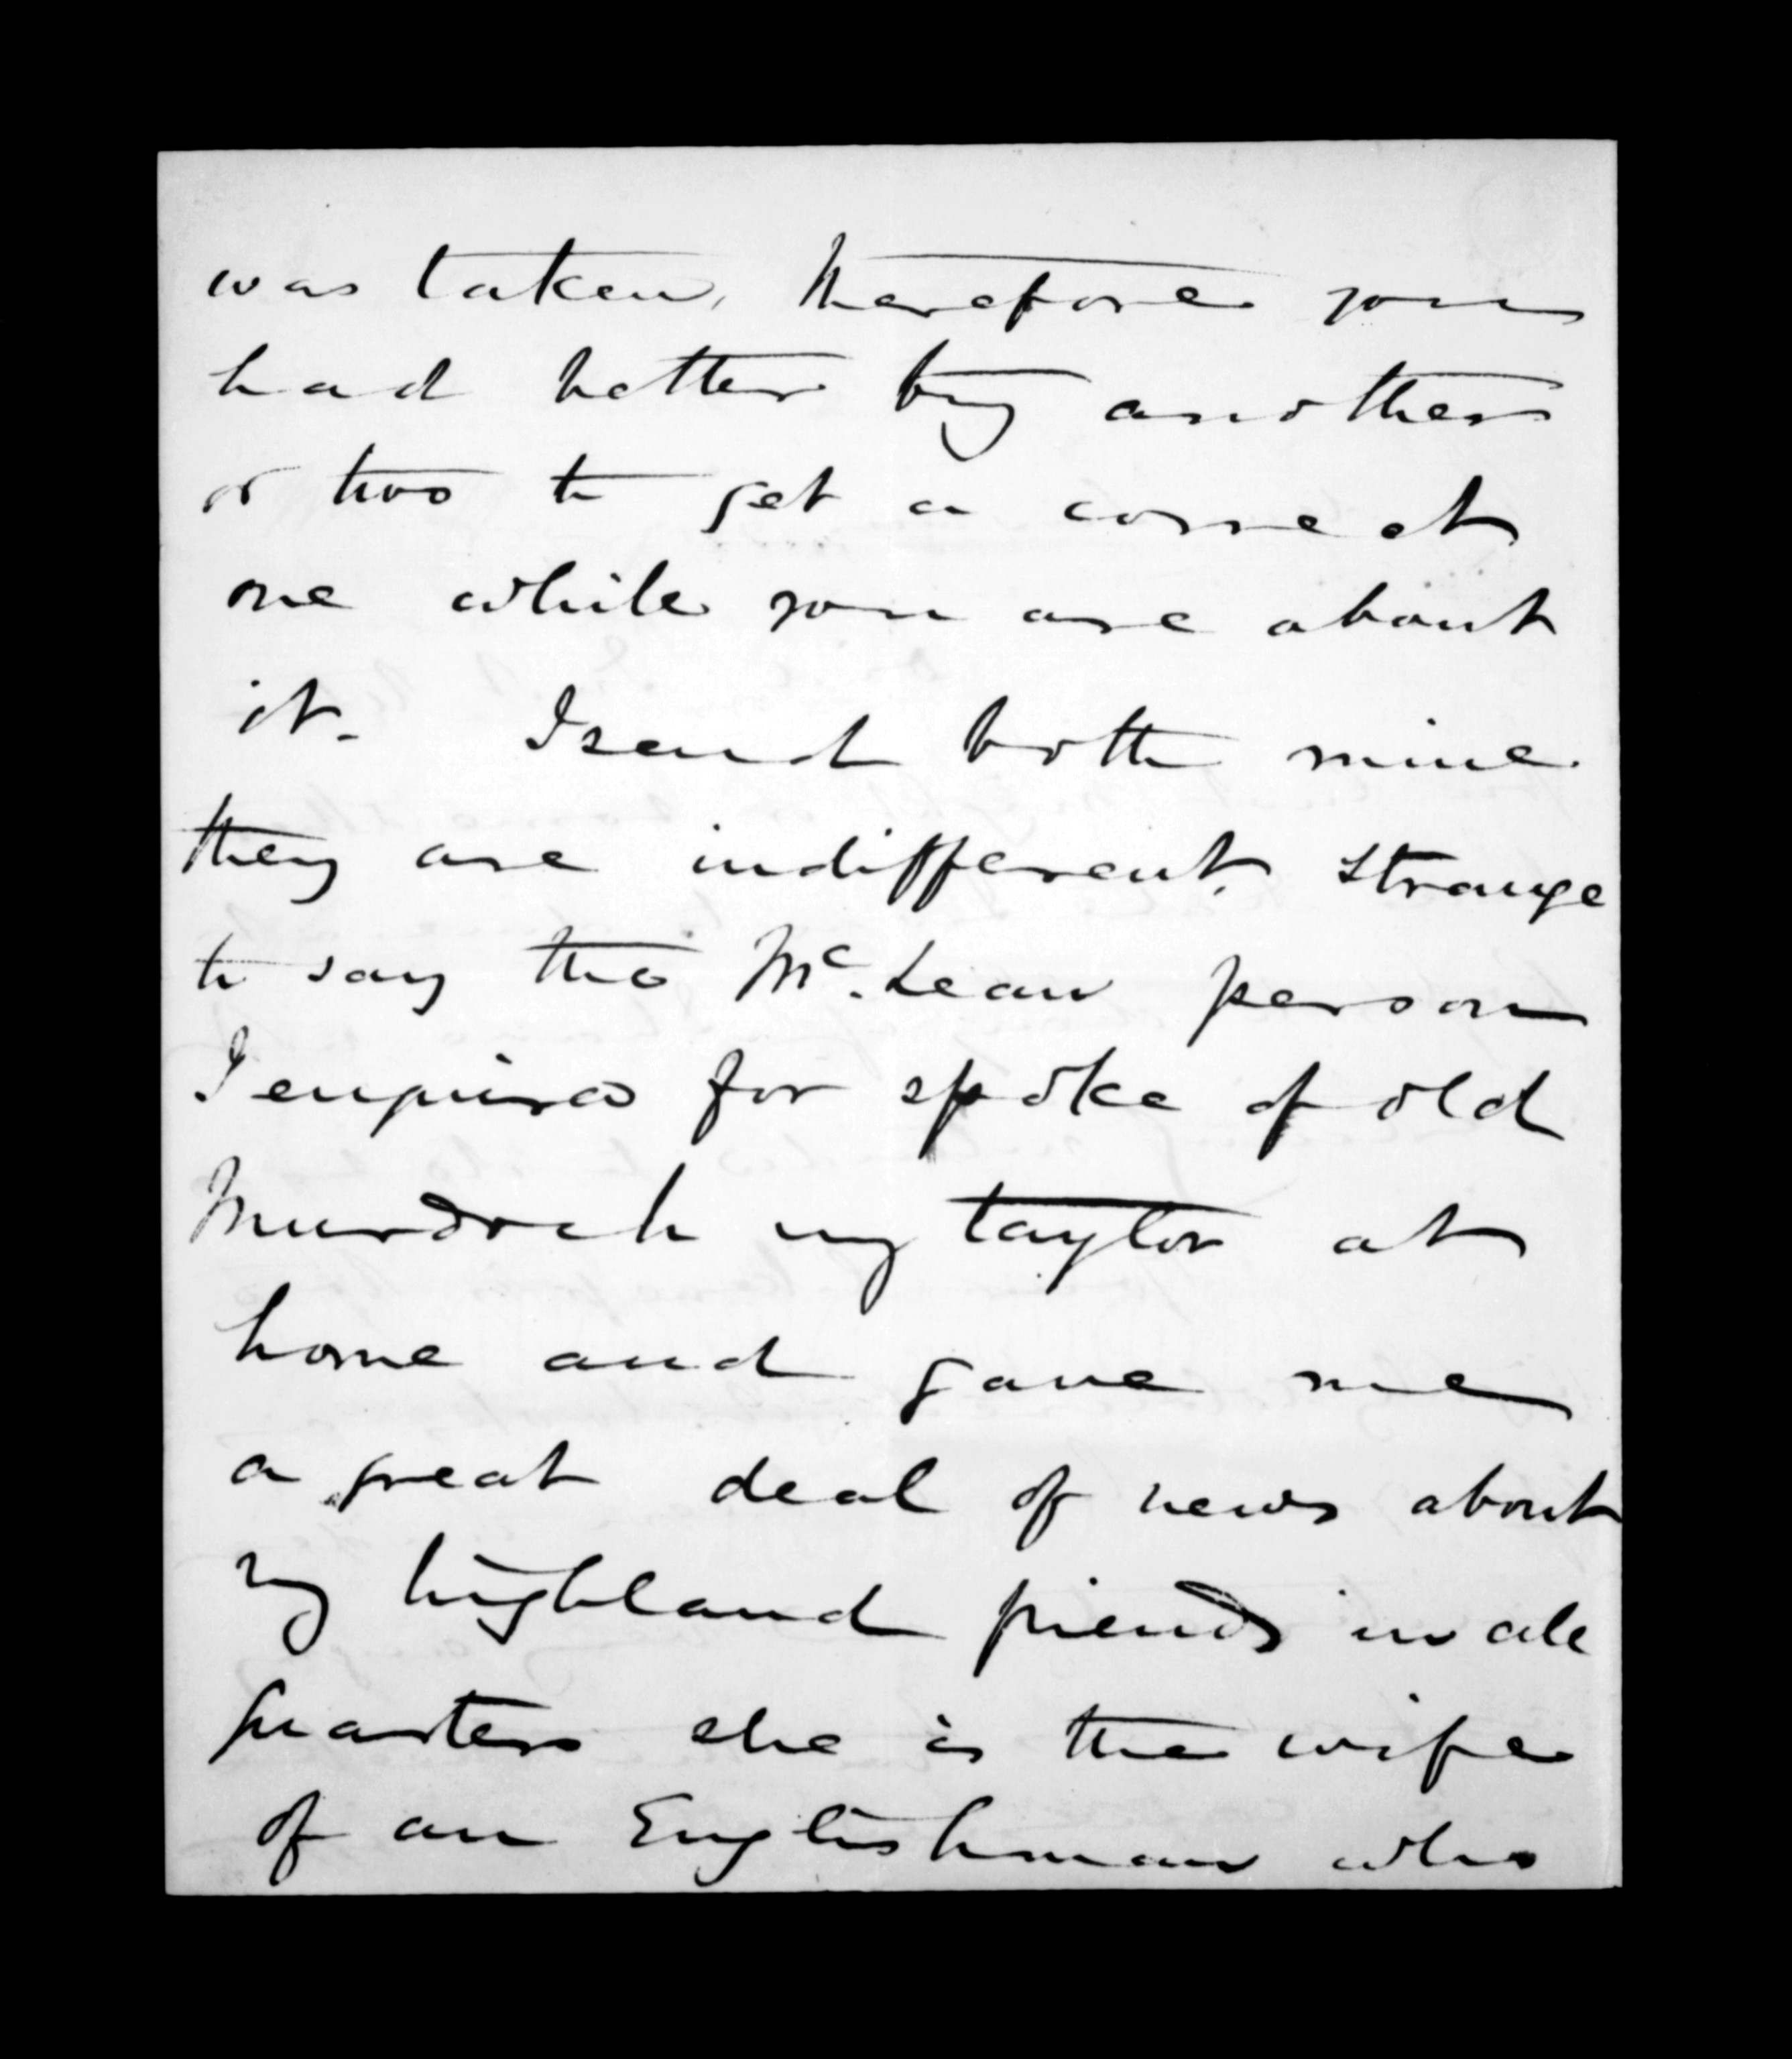 was taken, therefore you
had better try another
or two to get a correct
one while you are about
it. I send both mine
they are indifferent, strange
to say the Mc.Lean person
I enquired for spoke of old
Murdoch my taylor at
home and gave me
a great deal of news about
my highland friends in all
quarters she is the wife
of an Englishman who